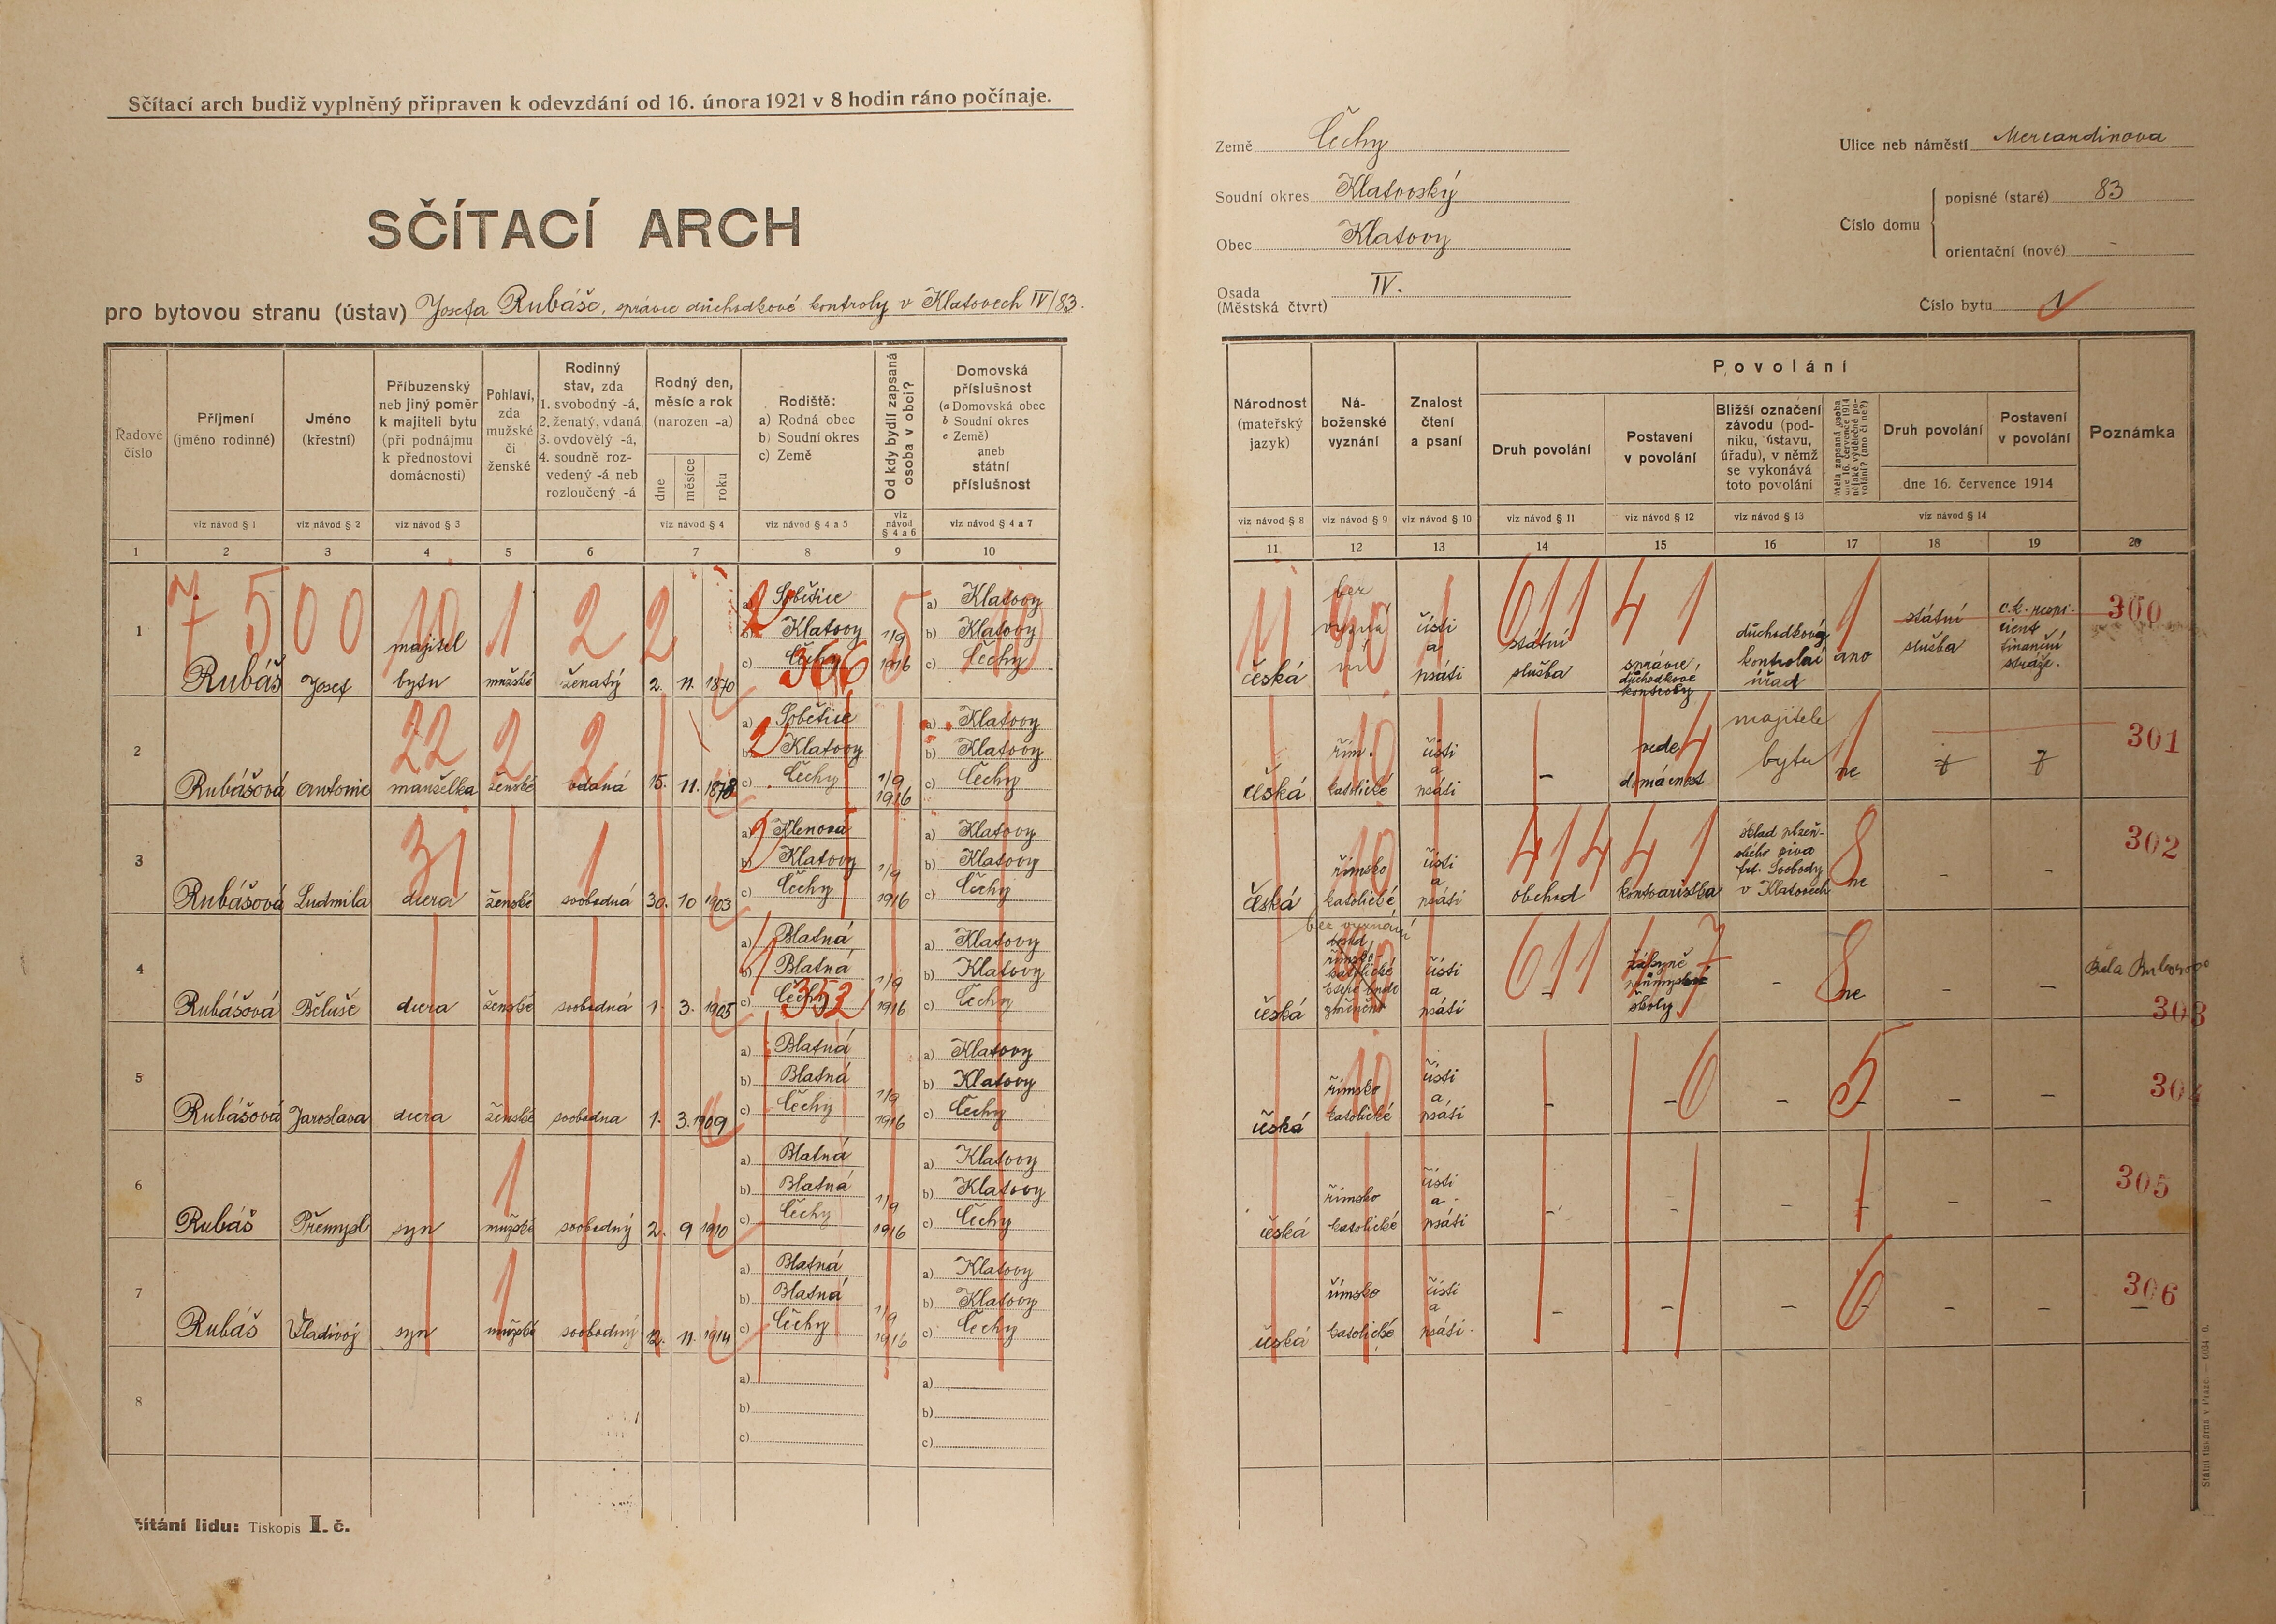 Sčítací arch budiž vyplněný připraven k odevzdání od 16. února 1921 v 8 hodin ráno počínaje.
SČÍTACÍ ARCH
pro bytovou stranu (ústav) Josefa Rubáše, správce důchodkové kontroly v Klatovech IV/83.
Země Čechy
Soudní okres Klatovský
Obec Klatovy
Osada (Městská čtvrt) IV.
Ulice neb náměstí Mercandinova
Číslo domu
popisné (staré) 83
orientační (nové) -
Číslo bytu 1
Řadové číslo
Příjmení (jméno rodinné)
Jméno (křestní)
Příbuzenský neb jiný poměr k majiteli bytu (při podnájmu k přednostovi domácnosti)
Pohlaví, zda mužské či ženské
Rodinný stav, zda 1. svobodný -á, 2. ženatý, vdaná 3. ovdovělý -á, 4. soudně rozvedený -á neb rozloučený -á
Rodný den, měsíc a rok (narozen -a)
dne měsíce roku
Rodiště: a) Rodná obec b) Soudní okres c) Země
Od kdy bydlí zapsaná osoba v obci?
Domovská příslušnost (a Domovská obec b Soudní okres c Země) aneb státní příslušnost
Národnost (mateřský jazyk)
Náboženské vyznání
Znalost čtení a psaní
Povolání
Druh povolání
Postavení v povolání
Bližší označení závodu (podniku, ústavu, úřadu), v němž se vykonává toto povolání
Měla zapsaná osoba dne 16. července 1914 nějaké výdělečné povolání? (ano či ne?)
Druh povolání
Postavení v povolání
dne 16. července 1914
Poznámka
viz návod § 1 viz návod § 2 viz návod § 3 viz návod § 4 viz návod § 4 a 5 viz návod § 4 a 6 viz návod § 4 a 7
viz návod § 8 viz návod § 9 viz návod § 10 viz návod § 11 viz návod § 12 viz návod § 13 viz návod § 14
1 2 3 4 5 6 7 8 9 10
11 12 13 14 15 16 17 18 19 20
7 5 0 0 10 1 2 2 2 366 5 10
11 90 1 611 4 1 1 300
1 Rubáš Josef majitel bytu mužské ženatý 2. 11. 1870
a) Sobětice b) Klatovy c) Čechy
1/9 1916
a) Klatovy b) Klatovy c) Čechy
česká bez vyznání čísti a psáti státní služba správce důchodkové kontroly důchodkový kontrolní úřad ano státní služba c.k. respicient finanční stráže.
22 2 2 2
10 4 1 301
2 Rubášová Antonie manželka ženské vdaná 15. 11. 1878
a) Sobětice b) Klatovy c) Čechy
1/9 1916
a) Klatovy b) Klatovy c) Čechy
česká řím. katolické čísti a psáti - vede domácnost majitele bytu ne
31 1 2
10 414 4 1 8 302
3 Rubášová Ludmila dcera ženské svobodná 30. 10 1903
a) Klenová b) Klatovy c) Čechy
1/9 1916
a) Klatovy b) Klatovy c) Čechy
česká římsko katolické čísti a psáti obchod kontoaristka sklad plzeňského piva frt. Svobody v Klatovech ne - -
353
611 4 7 8 303
4 Rubášová Běluše dcera ženské svobodná 1. 3. 1905
a) Blatná b) Blatná c) Čechy
1/9 1916
a) Klatovy b) Klatovy c) Čechy
česká bez vyznání římsko-katolické čísti a psáti - žákyně průmyslové školy - ne - -
10 6 5 304
5 Rubášová Jaroslava dcera ženské svobodna 1. 3. 1909
a) Blatná b) Blatná c) Čechy
1/9 1916
a) Klatovy b) Klatovy c) Čechy
česká římsko katolické čísti a psáti - - - - -
1 305
6 Rubáš Přemysl syn mužské svobodný 2. 9 1910
a) Blatná b) Blatná c) Čechy
1/9 1916
a) Klatovy b) Klatovy c) Čechy
česká římsko katolické čísti a psáti - - - - - -
1 6 306
7 Rubáš Vladivoj syn mužské svobodný 12. 11. 1914
a) Blatná b) Blatná c) Čechy
1/9 1916
a) Klatovy b) Klatovy c) Čechy
česká římsko katolické čísti a psáti. - - - - - - -
8
a) b) c)
a) b) c)
čítání lidu: Tiskopis I. č.
Státní tiskárna v Praze.